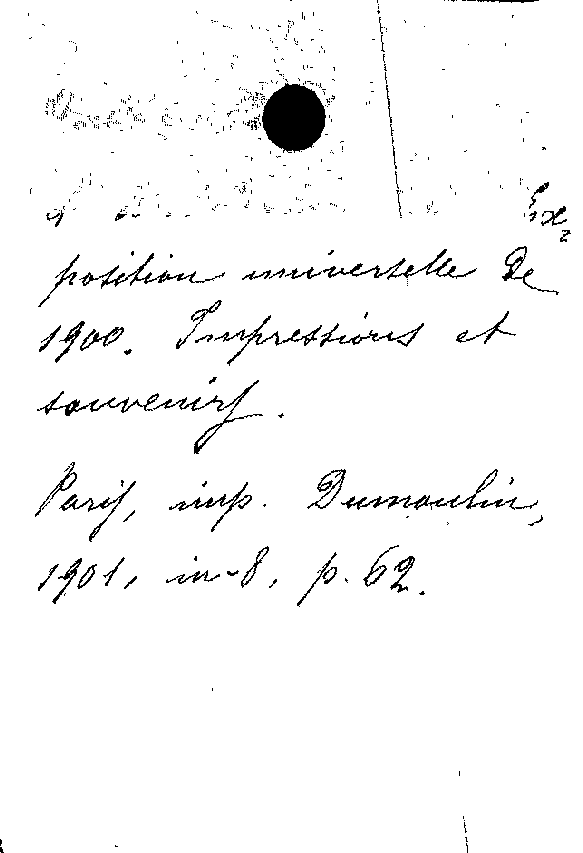 Ex-
position universelle de
1900. Impressions et
souvenirs.
Paris, imp. Dumoulin,
1901, in-8, p. 62.